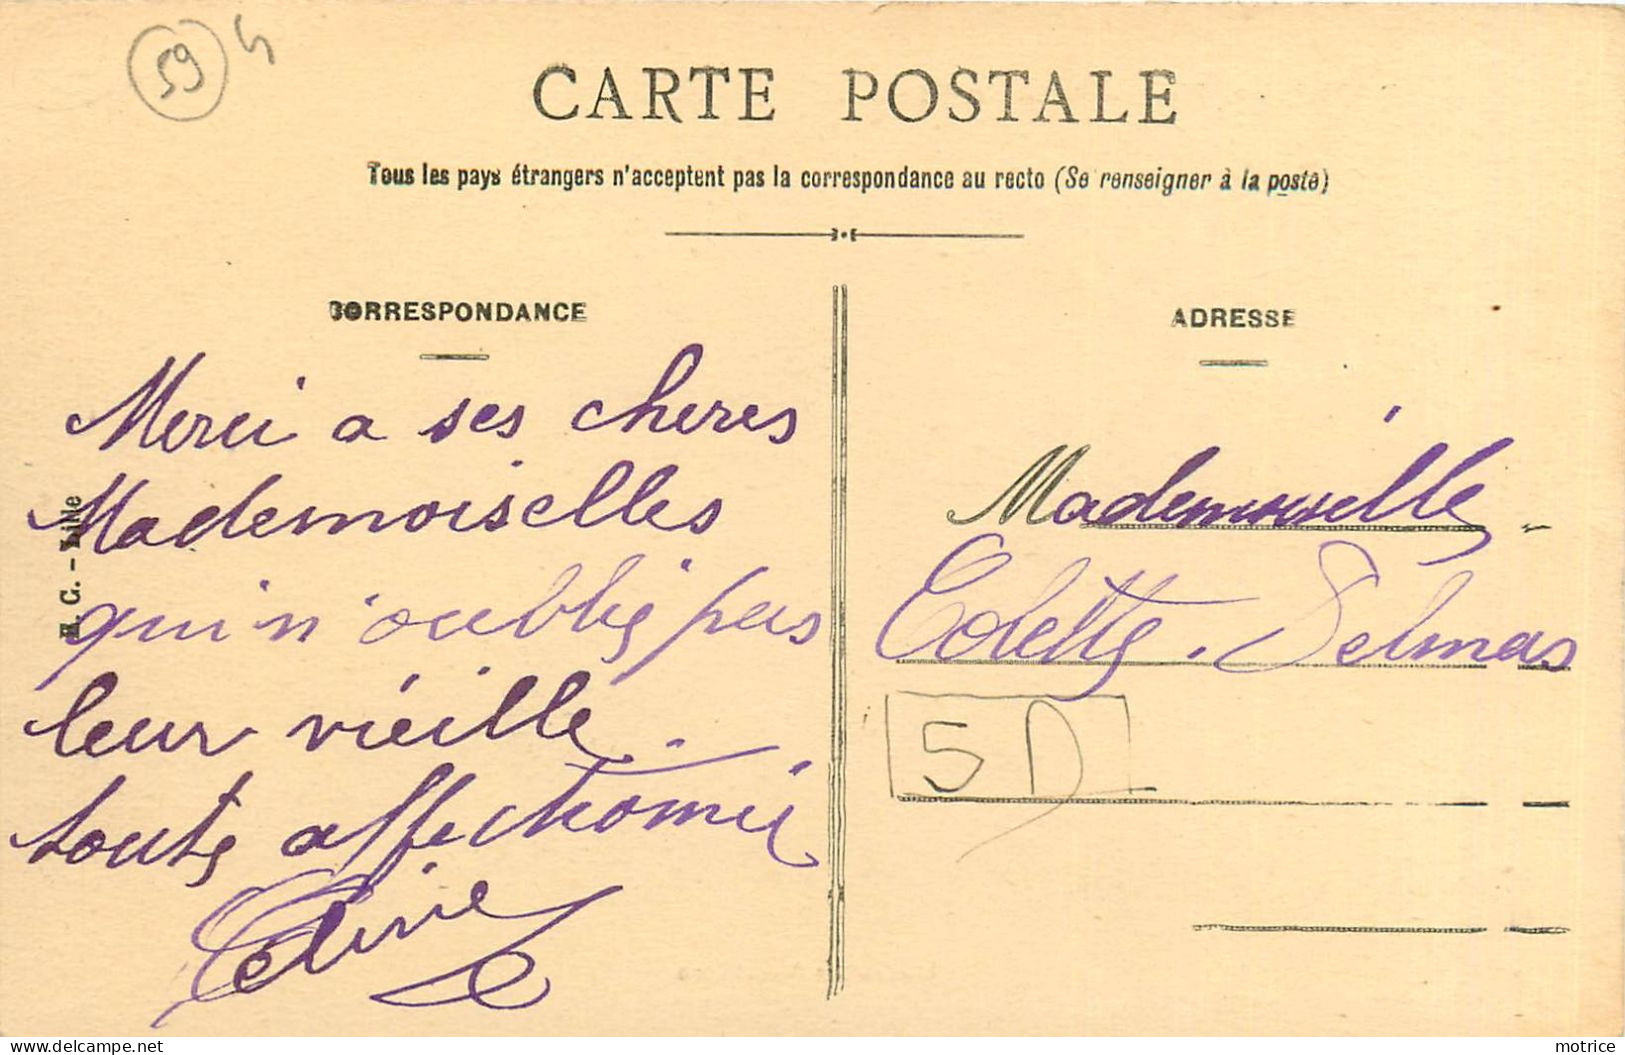 59 5
CARTE POSTALE
Tous les pays étrangers n'acceptent pas la correspondance au recto (Se renseigner à la poste)
CORRESPONDANCE
Merci a ses cheres
Mademoiselles
qui n'oublie pas
leur vieille
toute affectionnée
Celine
C. - Lille
ADRESSE
Mademoiselle
Colette. Delmas
5 D
delcampe.net
motrice